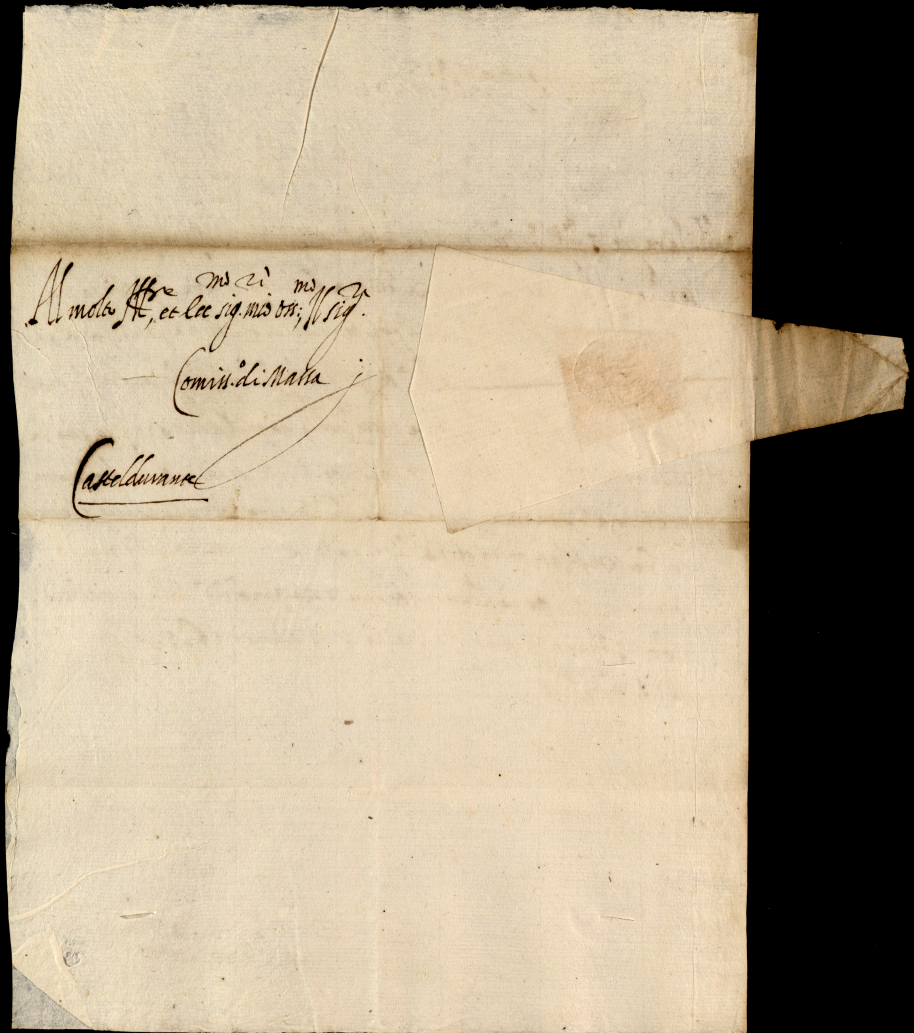 Al molto Ill.re, et Ecc.mo sig.r mio oss.mo, Il sig.r
Comiss.o di Massa
Casteldurante